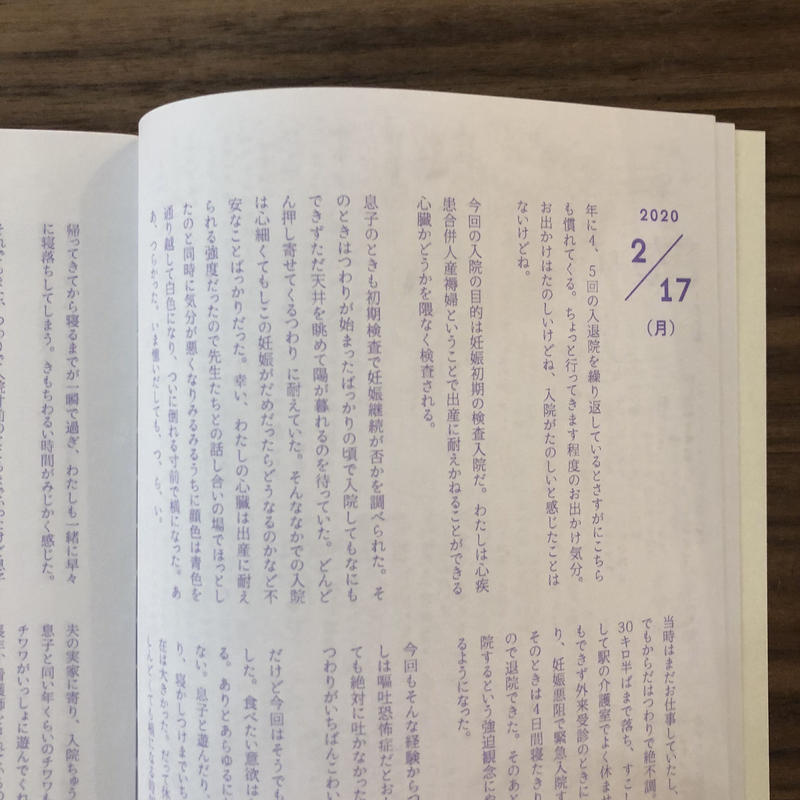 2020
2/17
(月)
年に4、5回の入退院を繰り返しているとさすがにこちら
も慣れてくる。ちょっと行ってきます程度のお出かけ気分。
お出かけはたのしいけどね、入院がたのしいと感じたことは
ないけどね。
今回の入院の目的は妊娠初期の検査入院だ。わたしは心疾
患合併人産褥婦ということで出産に耐えかねることができる
心臓かどうかを隈なく検査される。
息子のときも初期検査で妊娠継続が否かを調べられた。そ
のときはつわりが始まったばっかりの頃で入院してもなにも
できずただ天井を眺めて陽が暮れるのを待っていた。どんど
ん押し寄せてくるつわり に耐えていた。そんななかでの入院
は心細くてもしこの妊娠がだめだったらどうなるのかなど不
安なことばっかりだった。幸い、わたしの心臓は出産に耐え
られる強度だったので先生たちとの話し合いの場でほっとし
たのと同時に気分が悪くなりみるみるうちに顔色は青色を
通り越して白色になり、ついに倒れる寸前で横になった。あ
あ、つらかった。いま憶いだしても、つ、ら、い。
当時はまだお仕事していたし、
でもからだはつわりで絶不調。
30キロ半ばまで落ち、すこし
して駅の介護室でよく休ませ
もできず外来受診のときに
り、妊娠悪阻で緊急入院す
そのときは4日間寝たきり
ので退院できた。そのあと
院するという強迫観念に
るようになった。
今回もそんな経験からつ
しは嘔吐恐怖症だとお
ても絶対に吐かなかった
つわりがいちばんこわい
だけど今回はそうでも
した。食べたい意欲は
る。ありとあらゆるに
ない。息子と遊んだり、
り、寝かしつけまでいち
在は大きかった。だって休
しんどくても横になる時間
帰ってきてから寝るまでが一瞬で過ぎ、わたしも一緒に早々
に寝落ちしてしまう。きもちわるい時間がみじかく感じた。
夫の実家に寄り、入院ちゅう
息子と同い年くらいのチワワも
チワワがいっしょに遊んでくれ